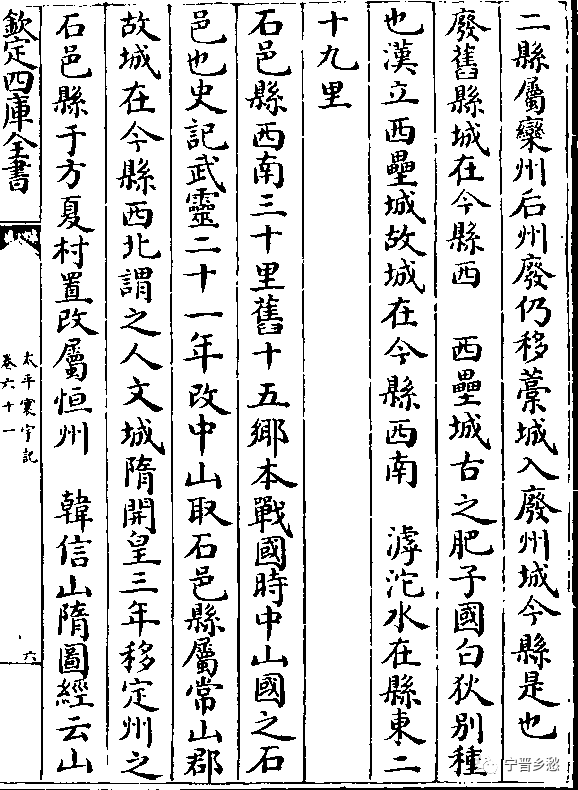 二縣屬欒州后州廢仍移藁城入廢州城今縣是也
廢舊縣城在今縣西　西壘城古之肥子國白狄别種
也漢立西壘城故城在今縣西南　滹沱水在縣東二
十九里
石邑縣西南三十里舊十五鄉本戰國時中山國之石
邑也史記武靈二十一年攻中山取石邑縣屬常山郡
故城在今縣西北謂之人文城隋開皇三年移定州之
石邑縣于方夏村置改屬恒州　韓信山隋圖經云山
欽定四庫全書
太平寰宇記
卷六十一
六
宁晋乡愁